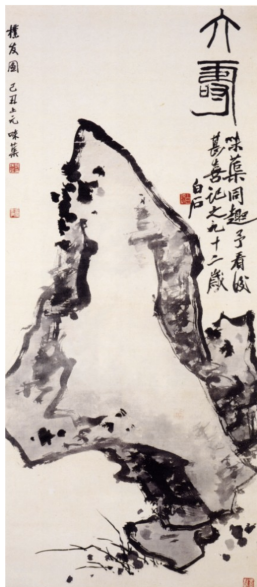 大壽
味蕖同趣予看後
甚喜記之九十二歲
白石
樸友圖 己丑上元 味蕖